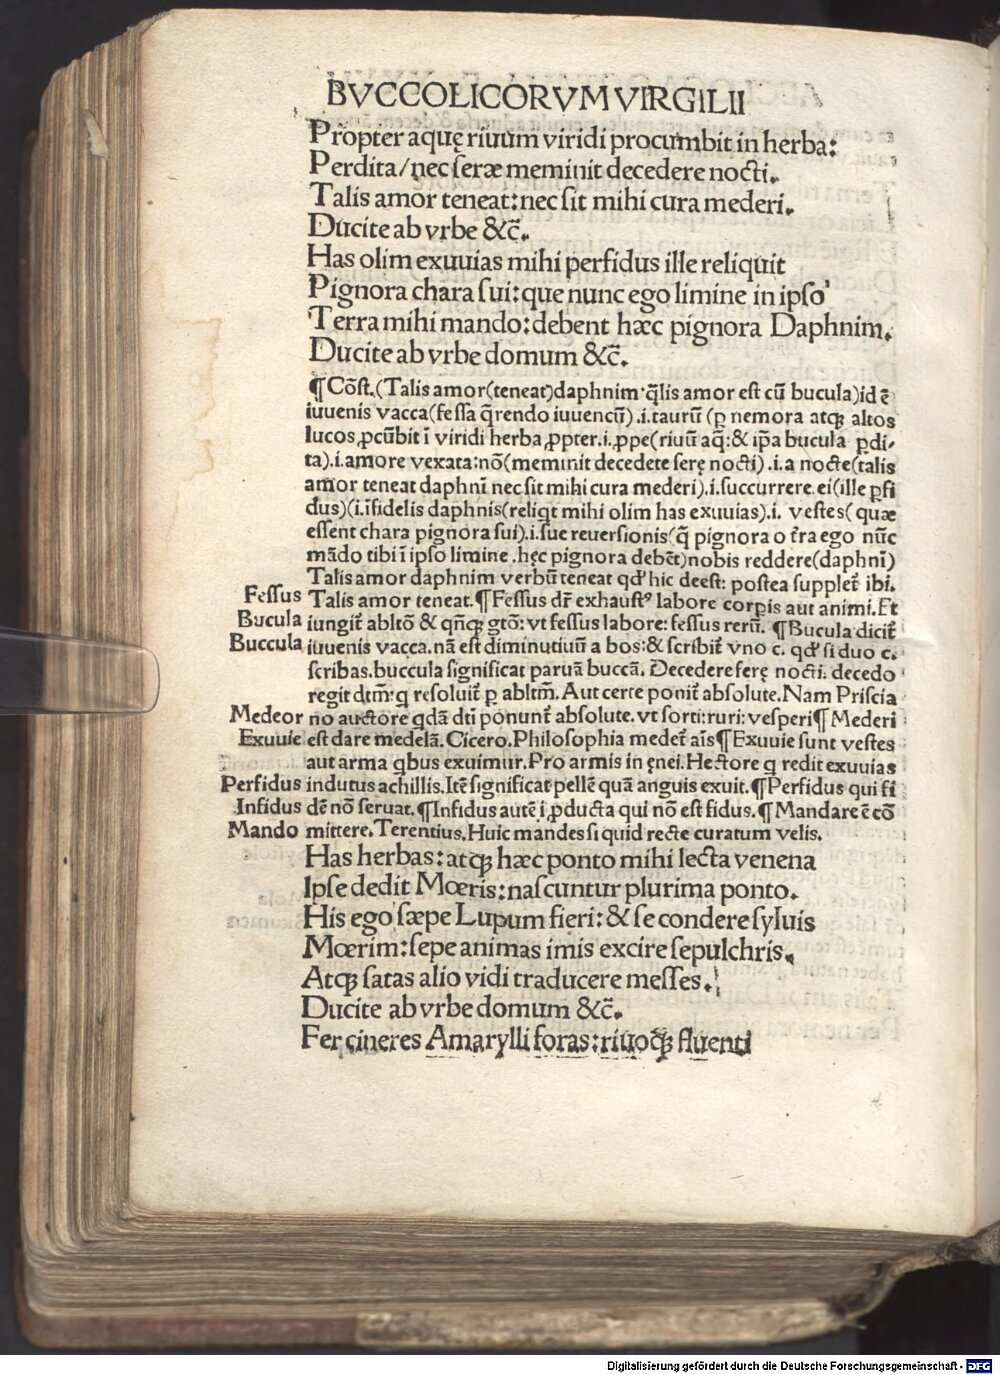 BVCCOLICORVM VIRGILII
Propter aquę riuum viridi procumbit in herba:
Perdita/nec seræ meminit decedere nocti.
Talis amor teneat: nec sit mihi cura mederi.
Ducite ab vrbe &c̄.
Has olim exuuias mihi perfidus ille reliquit
Pignora chara sui: que nunc ego limine in ipso
Terra mihi mando: debent hæc pignora Daphnim.
Ducite ab vrbe domum &c̄.
¶ Cōst. (Talis amor (teneat) daphnim q̄lis amor est cū bucula) id ē
iuuenis vacca (fessa q̄rendo iuuencū) .i. taurū (ꝑ nemora atqꝫ altos
lucos ꝓcūbit ī viridi herba ꝓpter .i. ꝓpe (riuū aq̄: & ip̄a bucula ꝑdi-
ta) .i. amore vexata: nō (meminit decedete serę nocti) .i. a nocte (talis
amor teneat daphnī nec sit mihi cura mederi) .i. succurrere ei (ille ꝑfi
dus) (i. īfidelis daphnis (reliqt mihi olim has exuuias) .i. vestes (quæ
essent chara pignora sui) .i. sue reuersionis (q̄ pignora o t̄ra ego nūc
mādo tibi ī ipso limine . hęc pignora debēt) nobis reddere (daphnī)
Talis amor daphnim verbū teneat qd' hic deest: postea supplet̄ ibi.
Fessus Talis amor teneat. ¶ Fessus dr̄ exhaustꝰ labore corꝑis aut animi. Et
Bucula iungit̄ abltō & qn̄qꝫ gtō: vt fessus labore: fessus rerū. ¶ Bucula dicit̄
Buccula iuuenis vacca. nā est diminutiuū a bos: & scribit̄ vno c. qd' si duo c.
scribas. buccula significat paruā buccā. Decedere serę nocti. decedo
regit dtm̄: q resoluit̄ ꝑ abltm̄. Aut certe ponit̄ absolute. Nam Priscia
Medeor no auctore qdā dti ponunt̄ absolute. vt sorti: ruri: vesperi ¶ Mederi
Exuuie est dare medelā. Cicero. Philosophia medet̄ aīs ¶ Exuuie sunt vestes
aut arma qbus exuimur. Pro armis in ęnei. Hectore q redit exuuias
Perfidus indutus achillis. Itē significat pellē quā anguis exuit. ¶ Perfidus qui fi
Infidus dē nō seruat. ¶ Infidus autē i, ꝓducta qui nō est fidus. ¶ Mandare ē cō
Mando mittere. Terentius. Huic mandes si quid recte curatum velis.
Has herbas: atqꝫ hæc ponto mihi lecta venena
Ipse dedit Mœris: nascuntur plurima ponto.
His ego sæpe Lupum fieri: & se condere syluis
Mœrim: sepe animas imis excire sepulchris.
Atqꝫ satas alio vidi traducere messes.
Ducite ab vrbe domum &c̄.
Fer cineres Amarylli foras: riuoqꝫ fluenti
Digitalisierung gefördert durch die Deutsche Forschungsgemeinschaft - DFG